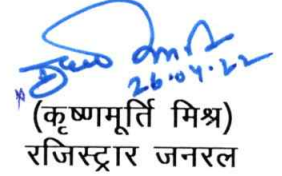 26.04.22
(कृष्णमूर्ति मिश्र)
रजिस्ट्रार जनरल